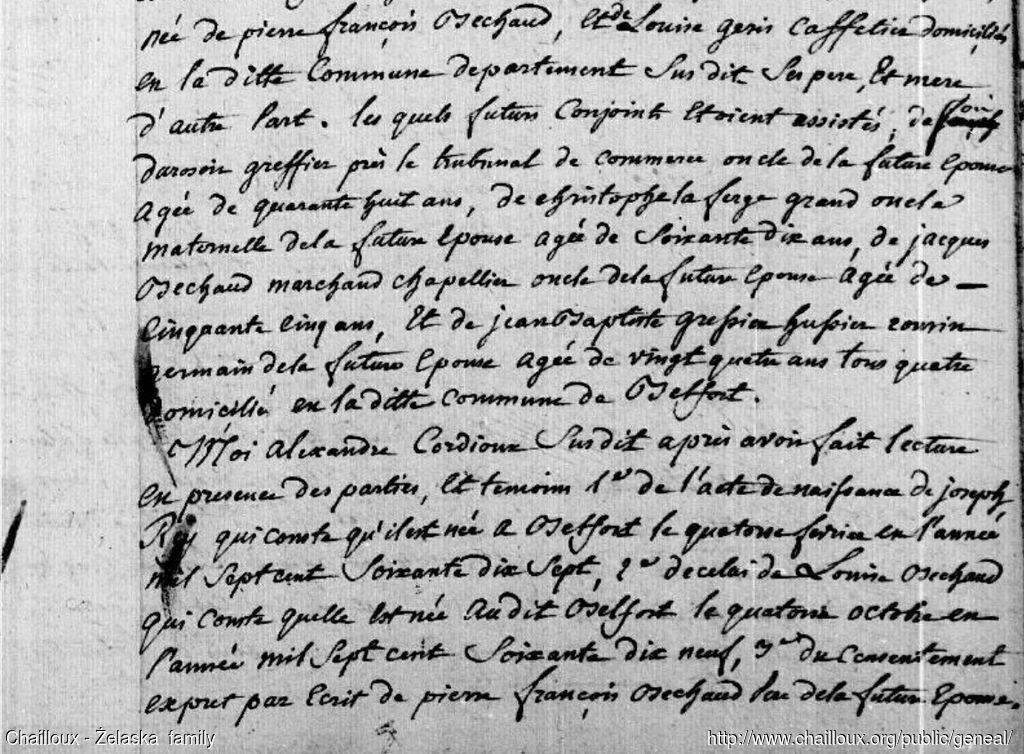 née de pierre françois Bechaud, Et de Louise geris Caffetier domiciliés
en la ditte Commune departement Susdit Ses pere, Et mere
d'autre Part. les quels futurs Conjoints Etoient assistés, de
greffier près le tribunal de commerce oncle de la future Epouse
agée de quarante huit ans, de christophe la ferge grand oncle
maternelle dela future Epouse agée de Soixante dix ans, de jacques
Bechaud marchand chapellier oncle dela future Epouse agée de —
Cinquante Cinq ans, Et de jean Baptiste hussier cousin
germain dela future Epouse agée de vingt quatre ans tous quatre
Domicilié en la ditte Commune de Belfort.
Moi Alexandre Cordioux Susdit après avoir fait lecture
en presence des parties, Et temoins 1er de l'acte de naissance de joseph
Rey qui conste qu'il est née a Belfort le quatorse fevrier en l'année
mil Sept cent Soixante dix Sept, 2e de celui de Louise Bechaud
qui Conste quelle est née audit Belfort le quatorse octobre en
l'année mil Sept cent Soixante dix neuf, 3e du Consentement
expret par Ecrit de pierre françois Bechaud Pere dela future Epouse.
Chailloux - Želaska family
http://www.chailloux.org/public/geneal/